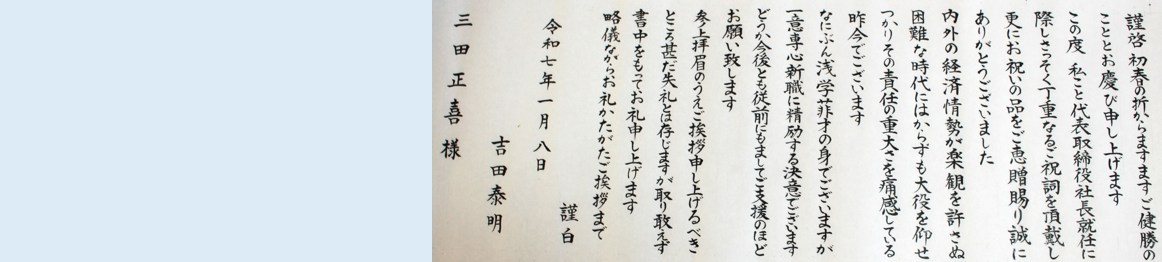 謹啓 初春の折からますますご健勝の
こととお慶び申し上げます
この度 私こと代表取締役社長就任に
際しさっそく丁重なるご祝詞を頂戴し
更にお祝いの品をご恵贈賜り誠に
ありがとうございました
内外の経済情勢が楽観を許さぬ
困難な時代にはからずも大役を仰せ
つかりその責任の重大さを痛感している
昨今でございます
なにぶん浅学菲才の身でございますが
一意専心新職に精励する決意でございます
どうか今後とも従前にもましてご支援のほど
お願い致します
参上拝眉のうえご挨拶申し上げるべき
ところ甚だ失礼とは存じますが取り敢えず
書中をもってお礼申し上げます
略儀ながらお礼かたがたご挨拶まで
謹白
令和七年一月八日
吉田泰明
三田正喜様